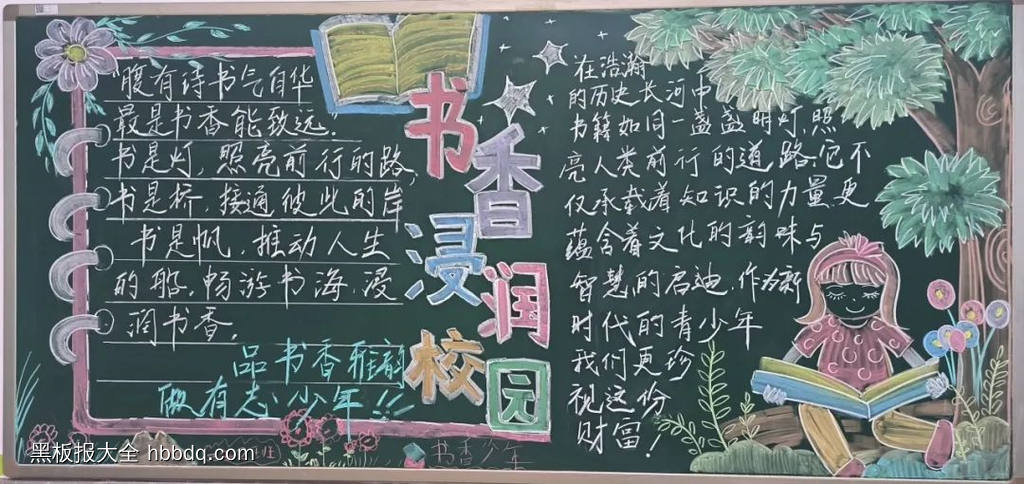 腹有诗书气自华
最是书香能致远！
书是灯，照亮前行的路，
书是桥，接通彼此的岸
书是帆，推动人生
的船，畅游书海，浸
润书香。
品书香雅韵
做有志少年！！！
书香浸润校园
在浩瀚
的历史长河中
书籍如同一盏盏明灯，照
亮人类前行的道路，它不
仅承载着知识的力量，更
蕴含着文化的韵味与
智慧的启迪，作为新
时代的青少年
我们更珍
视这份
财富！
班
书香少年
黑板报大全 hbbdq.com